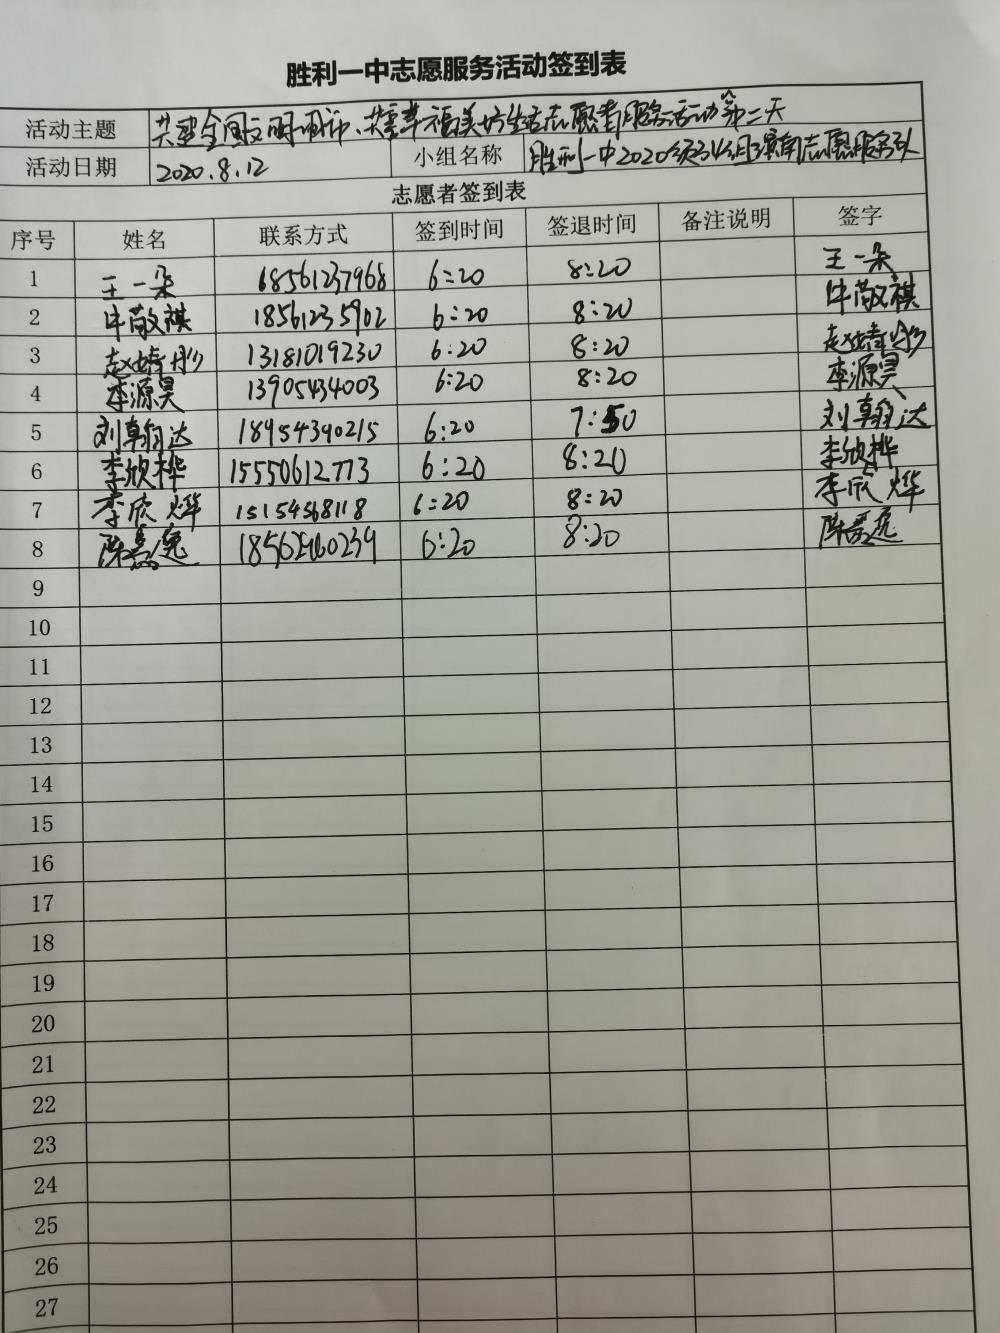 胜利一中志愿服务活动签到表
活动主题 共建全国文明城市、共享幸福美好生活志愿者服务活动第二天
活动日期 2020.8.12 小组名称 胜利一中2020级34组志愿服务队
志愿者签到表
序号 姓名 联系方式 签到时间 签退时间 备注说明 签字
1 王一朵 18561237968 6:20 8:20 王一朵
2 牛敬祺 18561235902 6:20 8:20 牛敬祺
3 赵婧彤 13181019230 6:20 8:20 赵婧彤
4 李源昊 13905434003 6:20 8:20 李源昊
5 刘翰达 18954390215 6:20 7:50 刘翰达
6 李欣桦 15550612773 6:20 8:20 李欣桦
7 李欣烨 15154568118 6:20 8:20 李欣烨
8 陈 6:20 8:20 陈
9
10
11
12
13
14
15
16
17
18
19
20
21
22
23
24
25
26
27